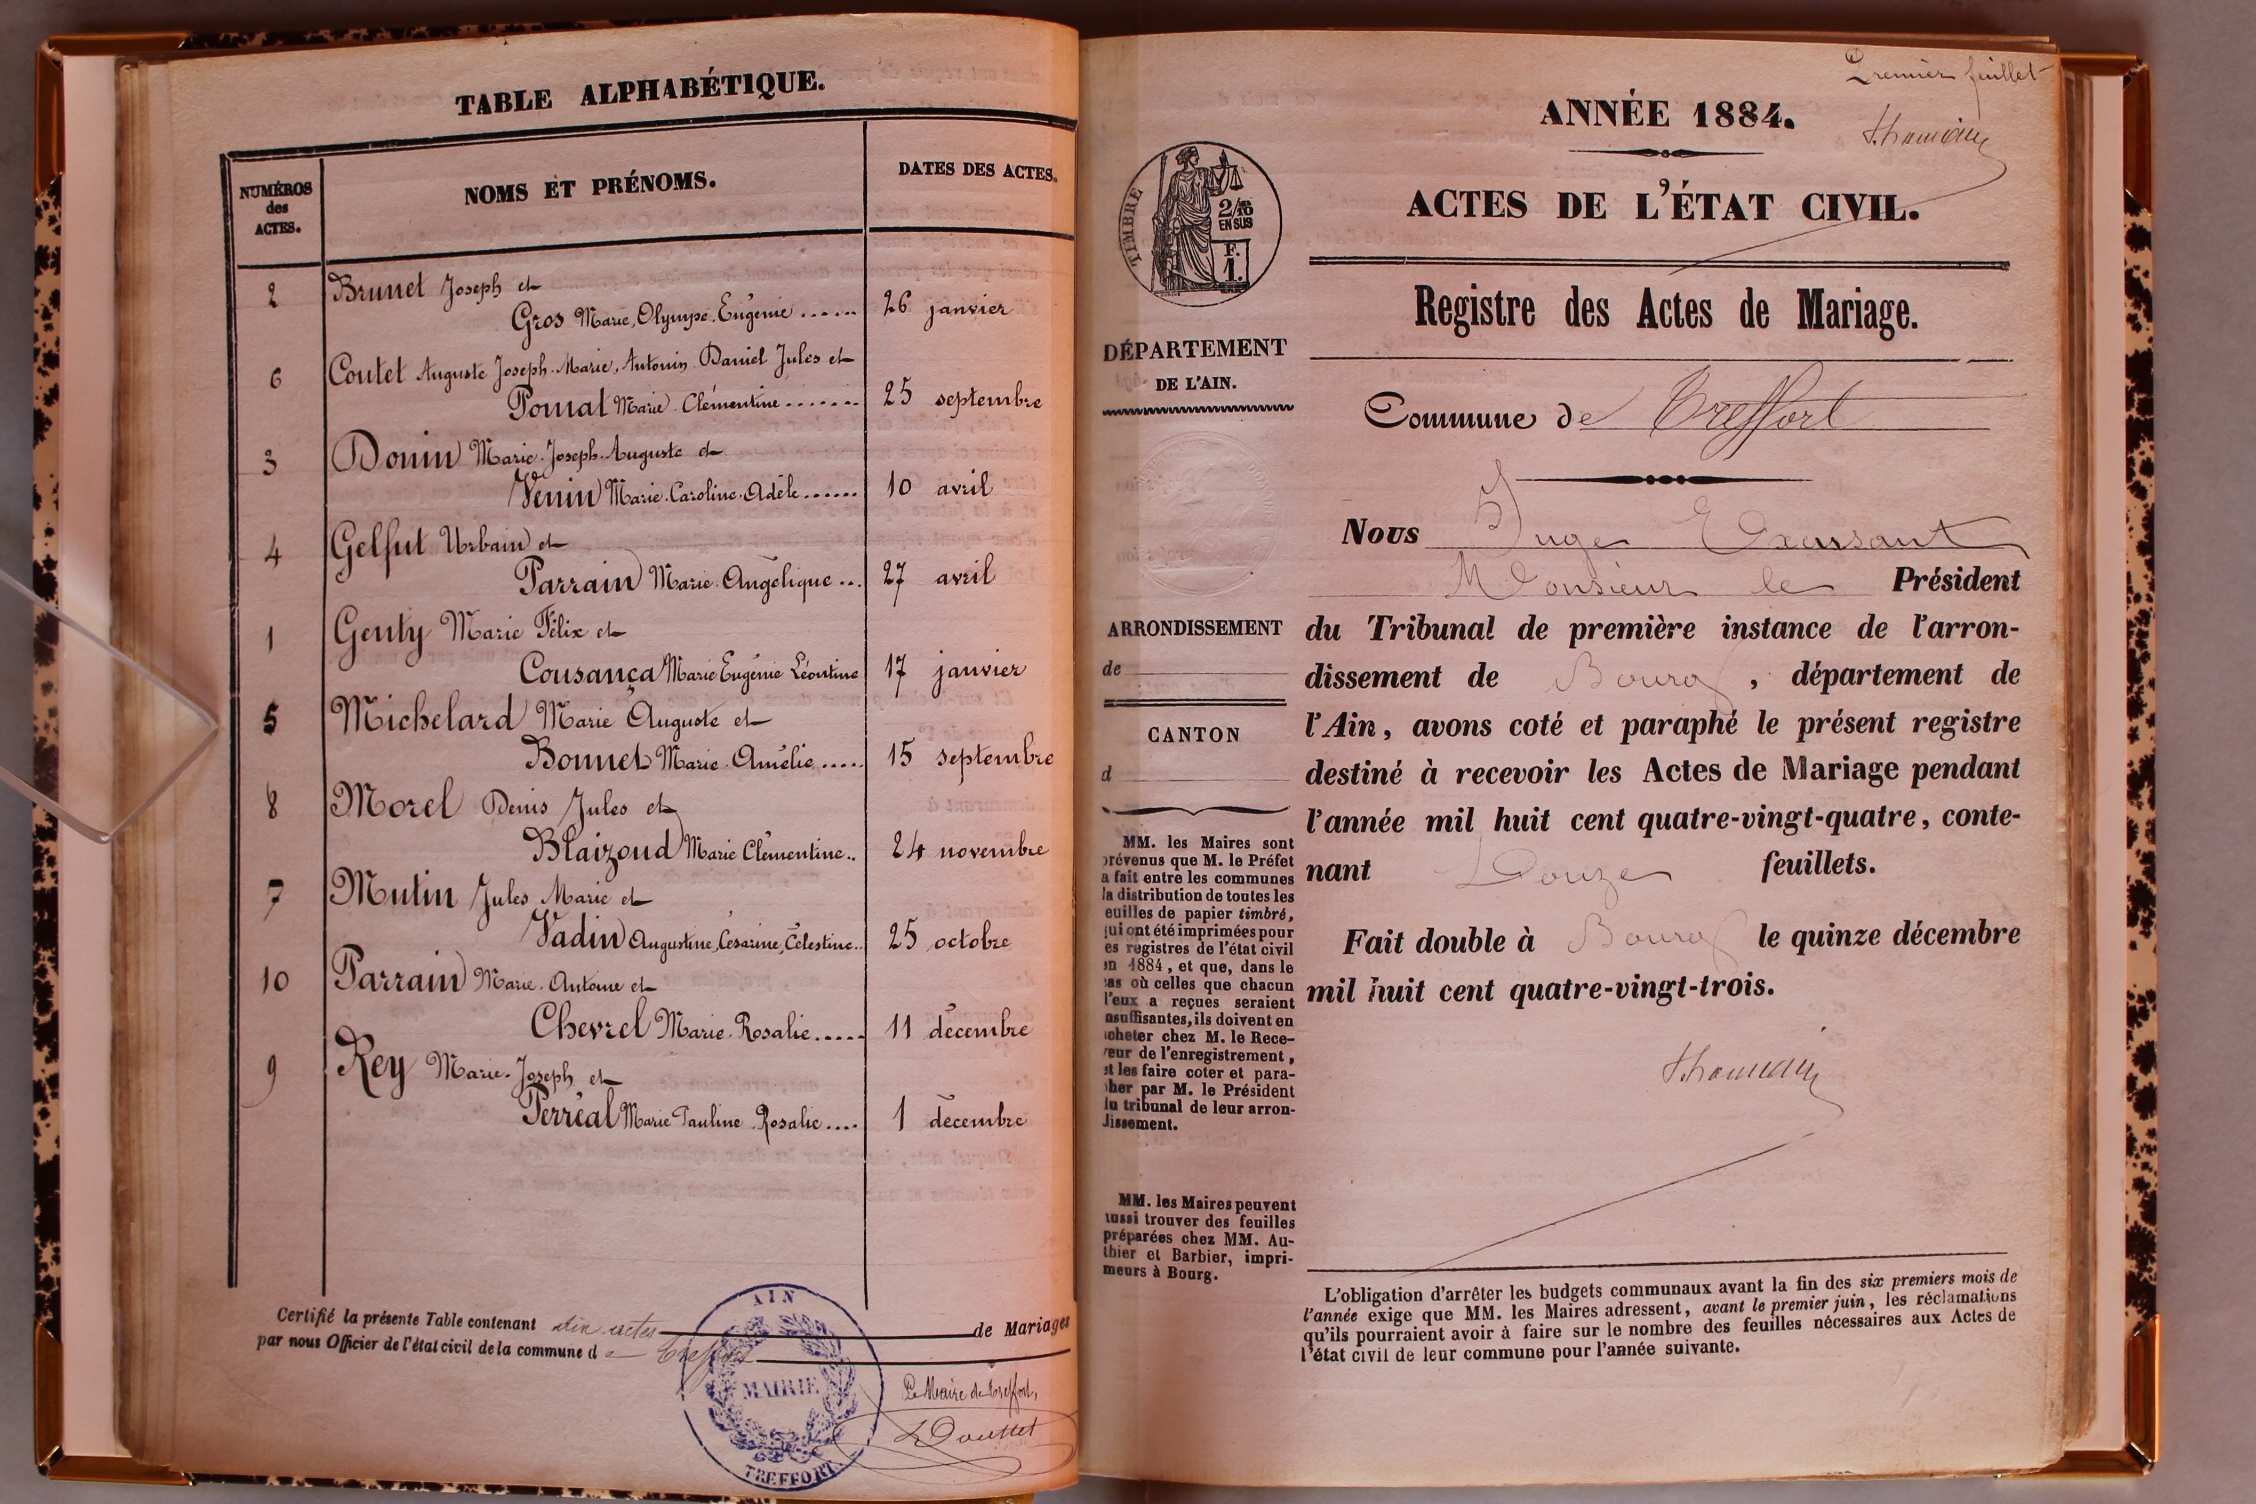 TABLE ALPHABÉTIQUE.
NUMÉROS des ACTES.
NOMS ET PRÉNOMS.
DATES DES ACTES.
2 Brunet Joseph et
Gros Marie, Olympe, Eugénie ...... 26 janvier
6 Coutet Auguste Joseph-Marie, Antonin Daniel Jules et
Pomat Marie-Clémentine ....... 25 septembre
3 Donin Marie-Joseph-Auguste et
Venin Marie-Caroline-Adèle ...... 10 avril
4 Gelfut Urbain et
Parrain Marie-Angélique ... 27 avril
1 Genty Marie Félix et
Cousança Marie Eugénie Léontine 17 janvier
5 Michelard Marie Auguste et
Bonnet Marie-Amélie ..... 15 septembre
8 Morel Denis Jules et
Blaizoud Marie Clémentine .. 24 novembre
7 Mutin Jules Marie et
Vadin Augustine, Césarine, Célestine .. 25 octobre
10 Parrain Marie-Antoine et
Chevrel Marie-Rosalie ..... 11 décembre
9 Rey Marie-Joseph et
Perréal Marie Pauline Rosalie .... 1 décembre
Certifié la présente Table contenant dix actes de Mariages
par nous Officier de l'état civil de la commune de Treffort
AIN
MAIRIE
TREFFORT
Le Maire de Treffort,
Premier feuillet
ANNÉE 1884.
ACTES DE L'ÉTAT CIVIL.
TIMBRE
2/10
EN SUS
F.
1.
Registre des Actes de Mariage.
DÉPARTEMENT
DE L'AIN.
Commune de Treffort
Nous Juge Exerçant
Monsieur le Président
du Tribunal de première instance de l'arron-
dissement de Bourg, département de
l'Ain, avons coté et paraphé le présent registre
destiné à recevoir les Actes de Mariage pendant
l'année mil huit cent quatre-vingt-quatre, conte-
nant Douze feuillets.
Fait double à Bourg le quinze décembre
mil huit cent quatre-vingt-trois.
ARRONDISSEMENT
de
CANTON
d
MM. les Maires sont
prévenus que M. le Préfet
a fait entre les communes
la distribution de toutes les
feuilles de papier timbré,
qui ont été imprimées pour
les registres de l'état civil
en 1884, et que, dans le
cas où celles que chacun
d'eux a reçues seraient
insuffisantes, ils doivent en
acheter chez M. le Rece-
veur de l'enregistrement,
et les faire coter et para-
pher par M. le Président
du tribunal de leur arron-
dissement.
MM. les Maires peuvent
aussi trouver des feuilles
préparées chez MM. Au-
thier et Barbier, impri-
meurs à Bourg.
L'obligation d'arrêter les budgets communaux avant la fin des six premiers mois de
l'année exige que MM. les Maires adressent, avant le premier juin, les réclamations
qu'ils pourraient avoir à faire sur le nombre des feuilles nécessaires aux Actes de
l'état civil de leur commune pour l'année suivante.